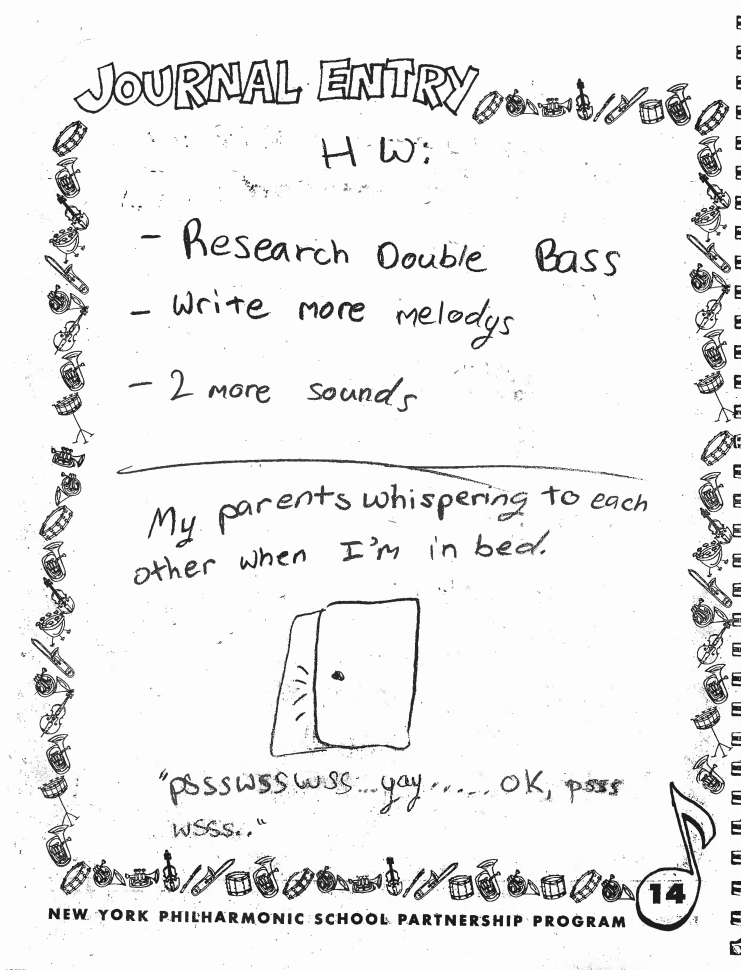 JOURNAL ENTRY
HW:
- Research Double Bass
- Write more melodys
- 2 more sounds
My parents whispering to each
other when I'm in bed.
"pssswsswss...yay..... OK, psss
wsss.."
14
NEW YORK PHILHARMONIC SCHOOL PARTNERSHIP PROGRAM